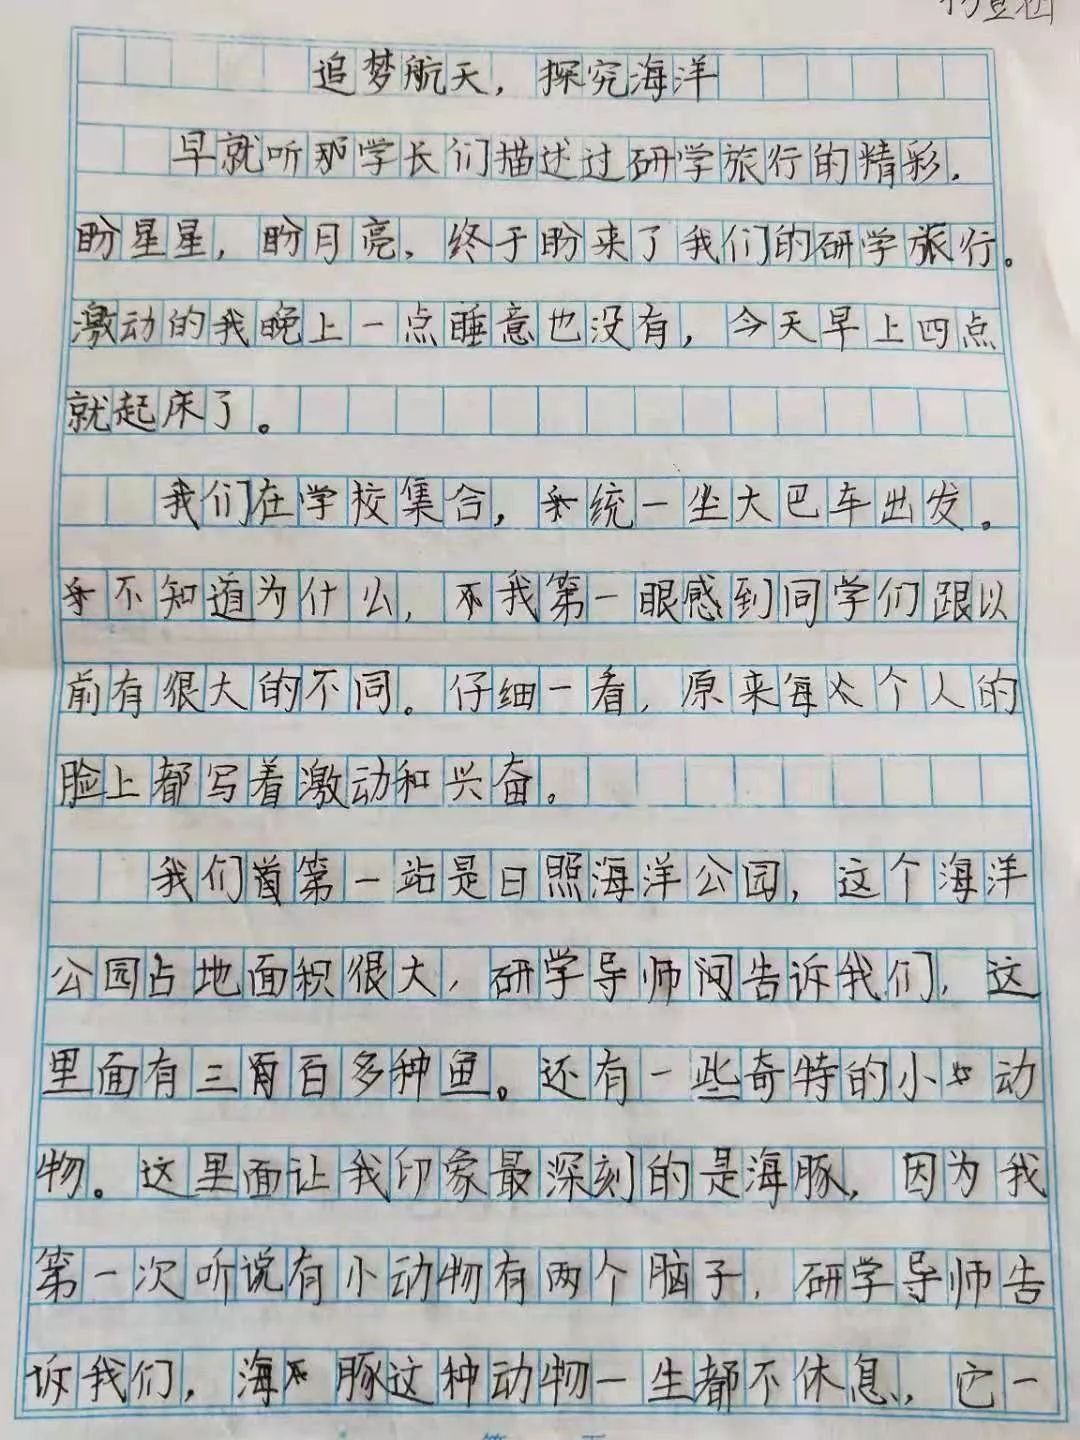 追梦航天，探究海洋
早就听那学长们描述过研学旅行的精彩，
盼星星，盼月亮，终于盼来了我们的研学旅行。
激动的我晚上一点睡意也没有，今天早上四点
就起床了。
我们在学校集合，统一坐大巴车出发。
不知道为什么，我第一眼感到同学们跟以
前有很大的不同。仔细一看，原来每个人的
脸上都写着激动和兴奋。
我们第一站是日照海洋公园，这个海洋
公园占地面积很大，研学导师问告诉我们，这
里面有三百多种鱼。还有一些奇特的小动
物。这里面让我印象最深刻的是海豚，因为我
第一次听说有小动物有两个脑子，研学导师告
诉我们，海豚这种动物一生都不休息，它一